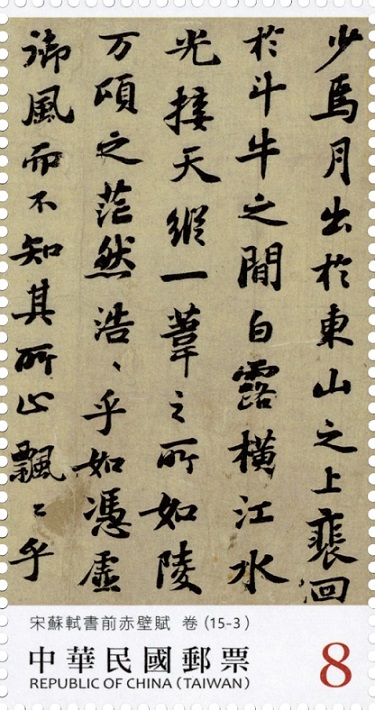 少焉月出於東山之上裴回
於斗牛之間白露橫江水
光接天縱一葦之所如陵
万頃之茫然浩〻乎如憑虛
御風而不知其所止飄〻乎
宋蘇軾書前赤壁賦 卷 (15-3)
中華民國郵票
REPUBLIC OF CHINA (TAIWAN)
8